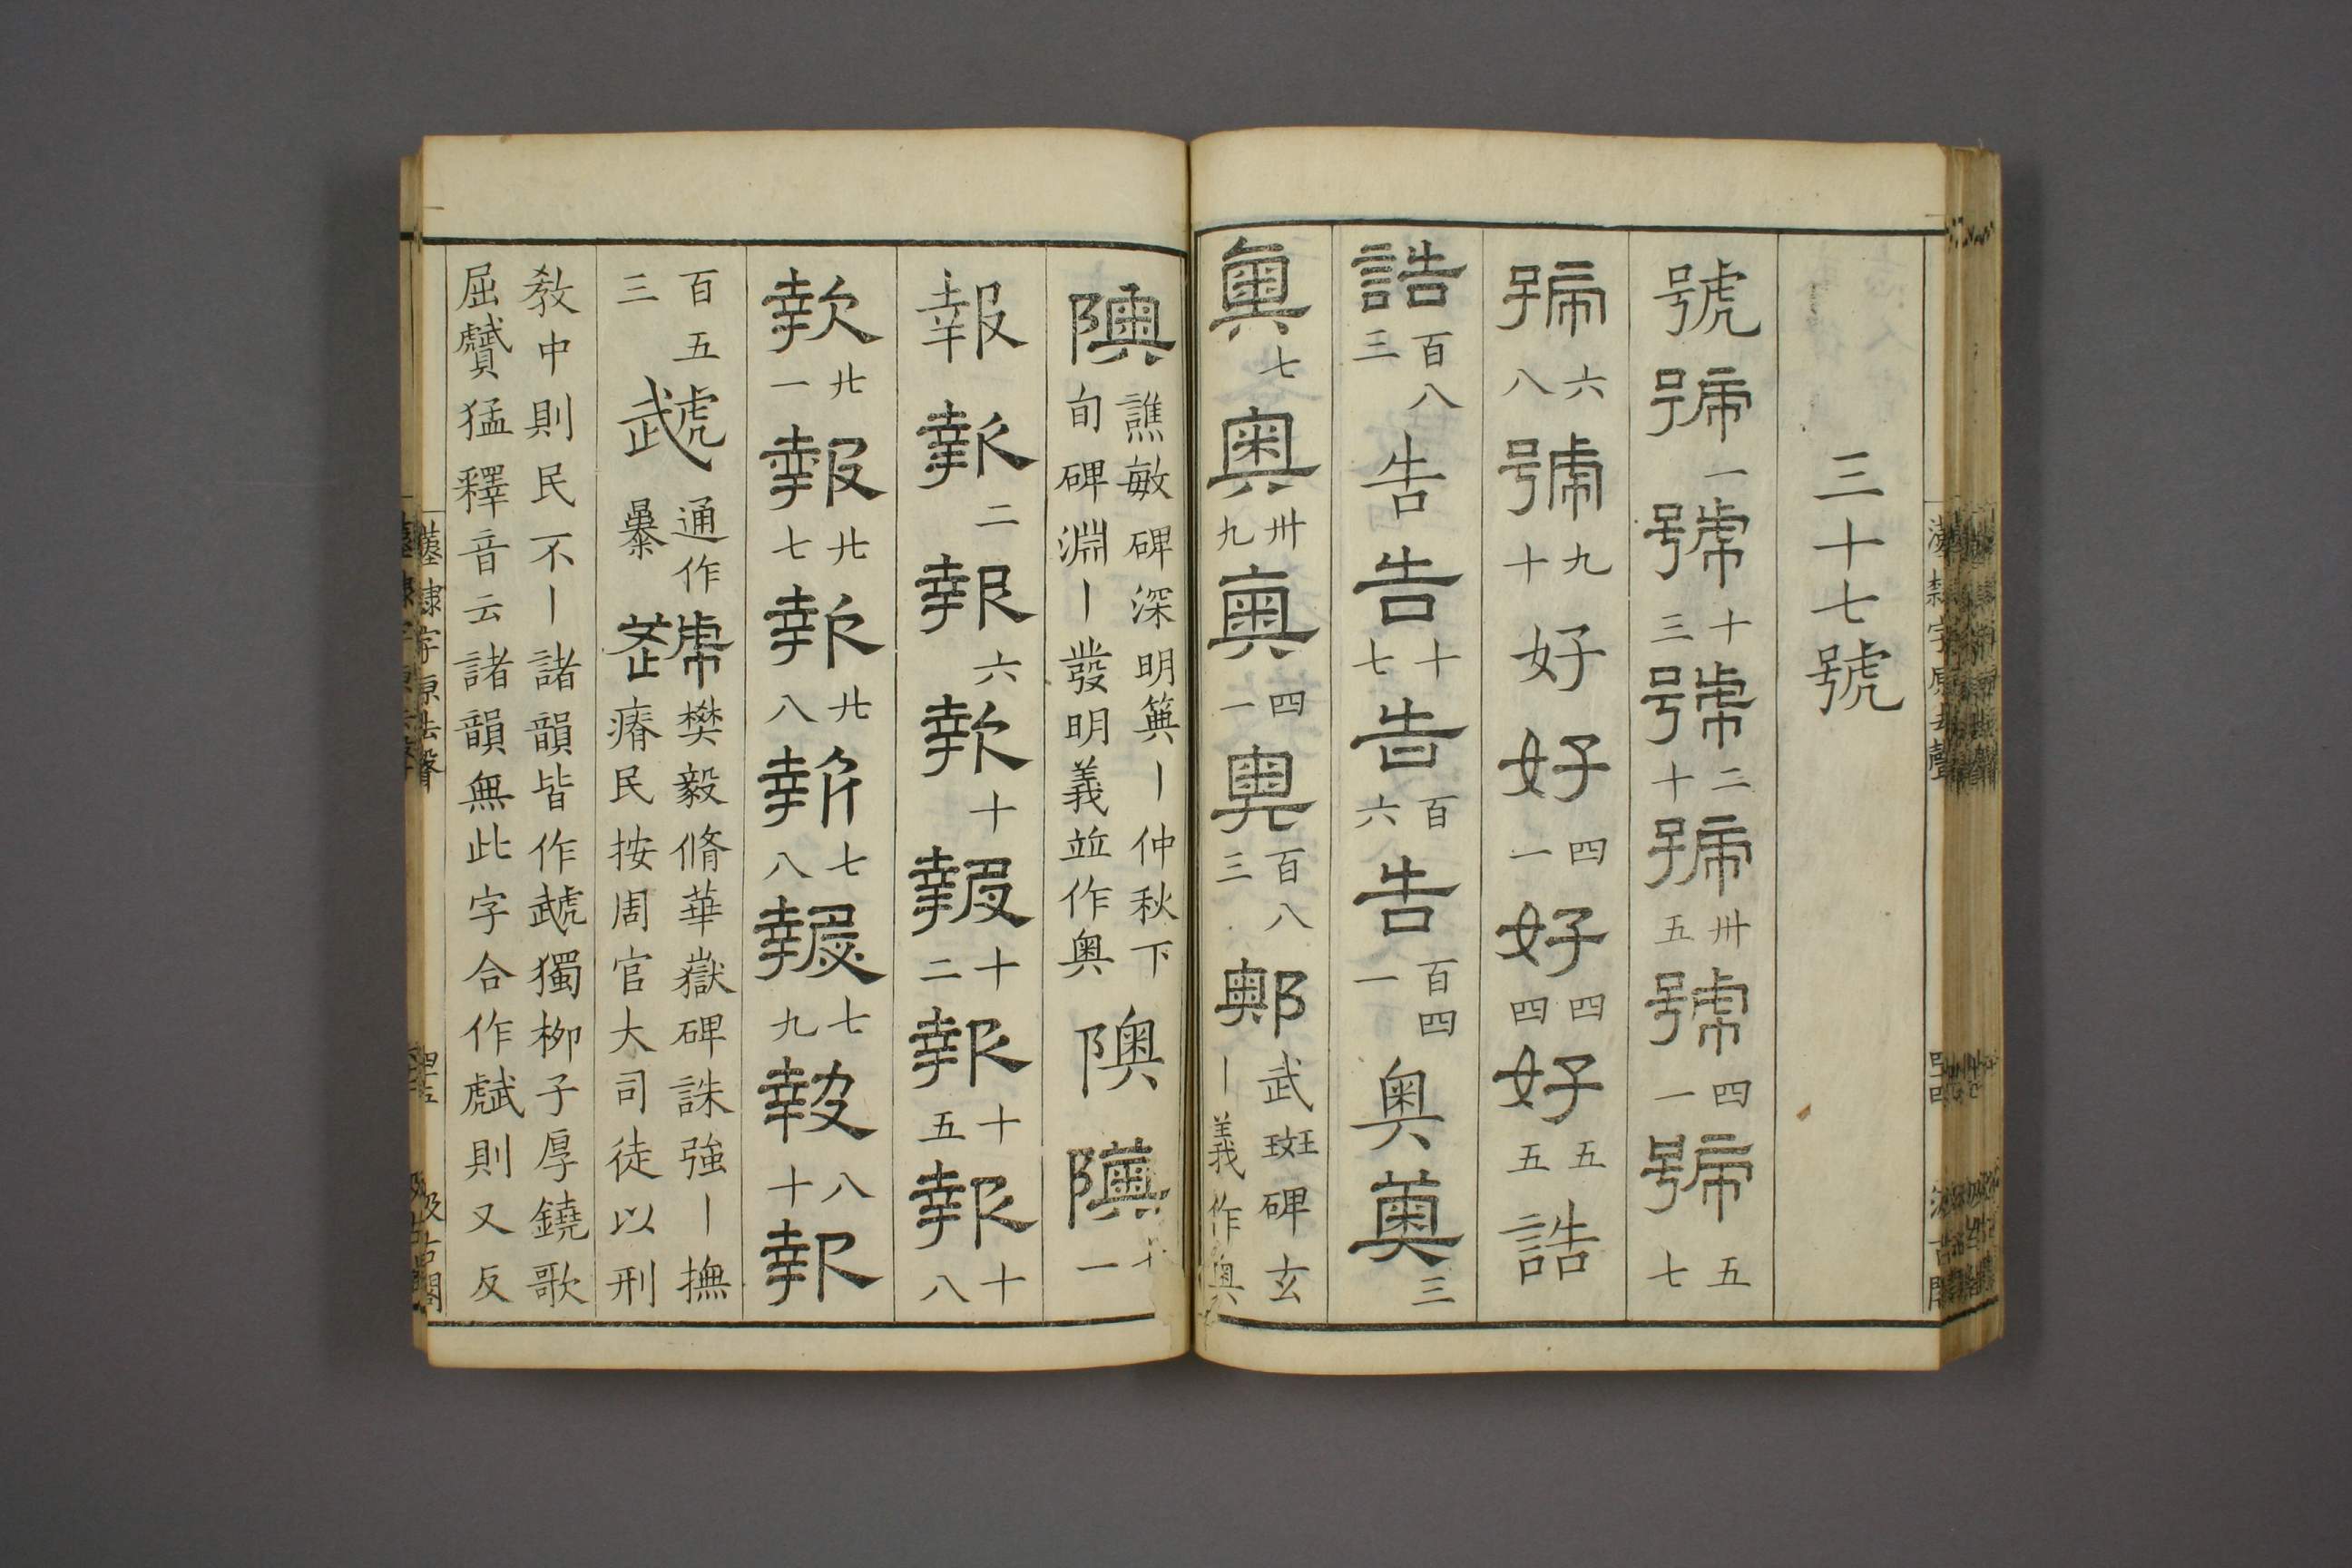 三十七號
號號一號十三號二十號卅五號四一號五七
號六八號九十好好四一好四四好五五誥
誥百八三告告十七告百六告百四一奧奧三
奧七奧卅九奧四一奧百八三鄓武斑碑玄丨義作奧
隩譙敏碑深明箕丨仲秋下旬碑淵丨發明義並作奧隩隩一
報報二報六報十報十二報十五報十八
報廿一報廿七報廿八報七八報七九報八十報
百五三虣通作暴虣樊毅脩華嶽碑誅強丨撫瘠民按周官大司徒以刑
教中則民不丨諸韻皆作虣獨柳子厚鐃歌
屈贙猛釋音云諸韻無此字合作虣則又反
漢隸字原去聲
汲古閣